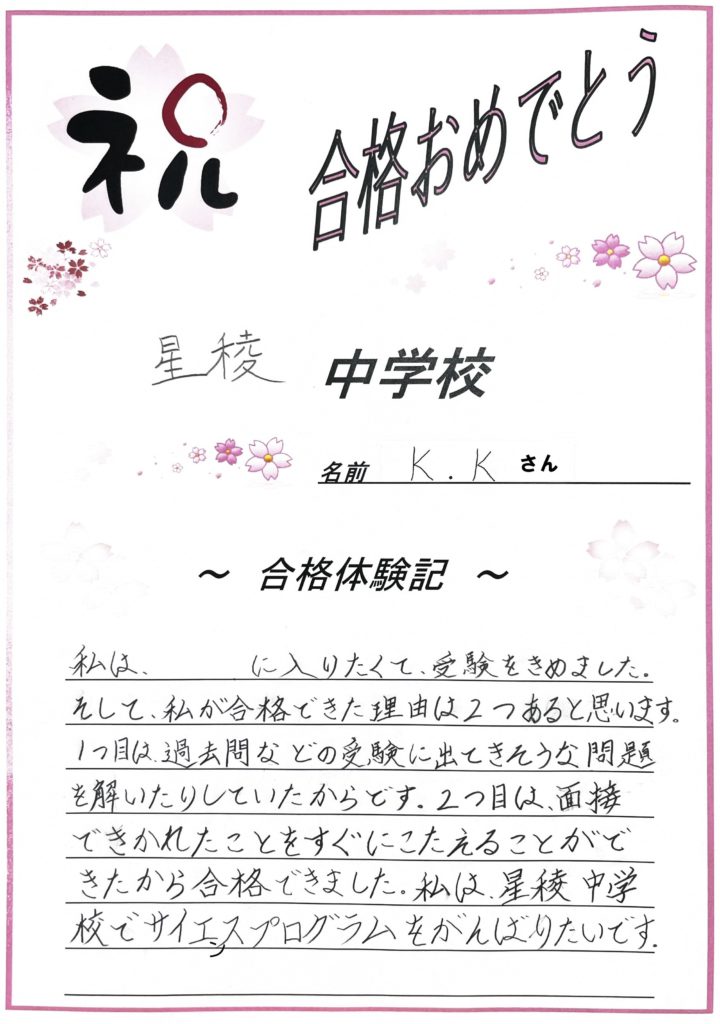 祝
合格おめでとう
星稜 中学校
名前 K.K さん
～ 合格体験記 ～
私は、 に入りたくて、受験をきめました。
そして、私が合格できた理由は2つあると思います。
1つ目は、過去問などの受験に出てきそうな問題
を解いたりしていたからです。2つ目は、面接
できかれたことをすぐにこたえることがで
きたから合格できました。私は、星稜中学
校でサイエンスプログラムをがんばりたいです。